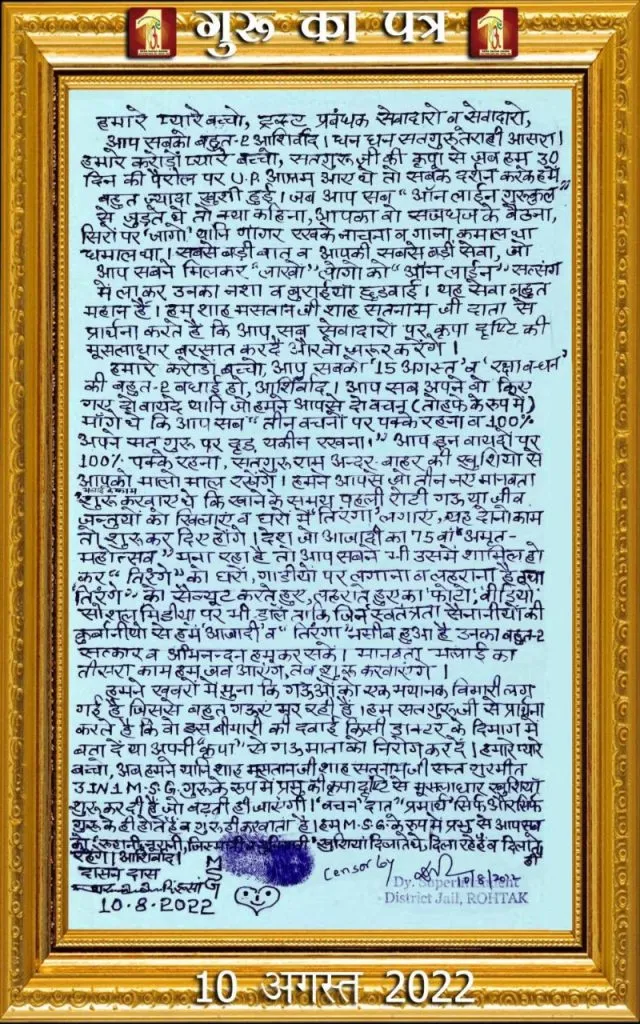 गुरू का पत्र
हमारे प्यारे बच्चो, ट्रस्ट प्रबंधक सेवादारो व सेवादारो,
आप सबको बहुत-2 आशिर्वाद। धन धन सतगुरू तेरा ही आसरा।
हमारे करोड़ों प्यारे बच्चो, सतगुरू जी की कृपा से जब हम 30
दिन की पैरोल पर U.P. आश्रम आए थे तो सबके दर्शन करके हमें
बहुत ज्यादा खुशी हुई। जब आप सब "ऑन लाईन गुरूकुल"
से जुड़ते थे तो क्या कहना, आपका वो सजधज के बैठना,
सिरों पर 'जागो' यानि गागर रखके नाचना व गाना कमाल था
धमाल था। सबसे बड़ी बात व आपकी सबसे बड़ी सेवा, जो
आप सबने मिलकर "लाखों" लोगों को "ऑन लाईन" सत्संग
में ला कर उनका नशा व बुराईयां छुड़वाई। यह सेवा बहुत
महान है। हम शाह मसतान जी शाह सतनाम जी दाता से
प्रार्थना करते है कि आप सब सेवादारो पर कृपा दृष्टि की
मूसलाधार बरसात कर दें और वो जरूर करेंगे।
हमारे करोड़ों बच्चो, आप सबको '15 अगस्त' व 'रक्षा बन्धन'
की बहुत-2 बधाई हो, आशिर्वाद। आप सब अपने वो किए
गए दो वायदे यानि जो हमने आपसे दो वचन (तोहफे के रूप में)
मांगे थे कि आप सब "तीन वचनों पर पक्के रहना व 100%
अपने सतगुरू पर दृढ़ यकीन रखना।" आप इन वायदों पर
100% पक्के रहना, सतगुरू राम अन्दर बाहर की खुशियों से
आपको माला माल रखेंगे। हमने आपसे जो तीन नए मानवता
भलाई के काम
शुरू करवाए थे कि खाने के समय पहली रोटी गऊ या जीव
जन्तुयों को खिलाएं व घरों में 'तिरंगा' लगाएं, यह दोनों काम
तो शुरू कर दिए होंगे। देश जो आजादी का 75 वां "अमृत-
महोत्सव" मना रहा है तो आप सबने भी उसमें शामिल हो
कर "तिरंगे" को घरों, गाडीयों पर लगाना व लहराना है तथा
"तिरंगे" को सेल्यूट करते हुए, लहराते हुए का 'फोटो', वीडियो
सोशल मिडीया पर भी डालें ताकि जिन स्वतंत्रता सैनानीयों की
कुर्बानीयों से हमें 'आजादी' व "तिरंगा" नसीब हुआ है उनका बहुत-2
सत्कार व अभिनन्दन हम कर सकें। मानवता भलाई का
तीसरा काम हम जब आएंगे, तब शुरू करवाएंगे।
हमने खबरों में सुना कि गऊओं को एक भयानक बिमारी लग
गई है जिससे बहुत गऊएं मर रही है। हम सतगुरू जी से प्रार्थना
करते है कि वो इस बीमारी की दवाई किसी डाक्टर के दिमाग में
बता दें या अपनी "कृपा" से गऊ माता को निरोग कर दें। हमारे प्यारे
बच्चो, अब हमने यानि शाह मसतान जी शाह सतनाम जी सन्त गुरमीत
3 IN 1 M.S.G. गुरू के रूप में प्रभू की कृपा दृष्टि से मूसलाधार खुशियां
शुरू कर दी है जो बढ़ती ही जाएंगी। 'वचन' दात "प्रमार्थ" सिर्फ और सिर्फ
गुरू के ही होते हैं व गुरू ही करवाता है। हम M.S.G. के रूप में प्रभू से आप सब
को रूहानी, नूरानी, जिस्मानी खुशियां दिलाते थे, दिला रहे हैं व दिलाते ही
रहेंगे। आशिर्वाद।
दासन दास
MSG
10.8.2022
Censor by
Dy. Superintendent
District Jail, ROHTAK
10 अगस्त 2022